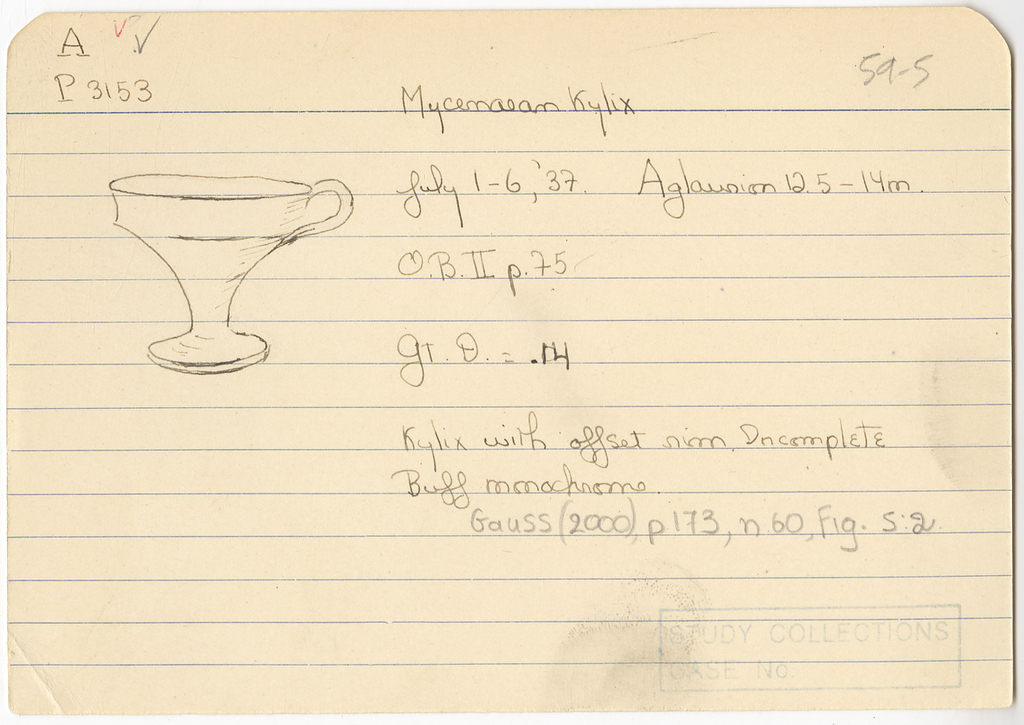 A
P 3153
59-5
Mycenaean Kylix
July 1-6, '37. Aglaurion 12.5-14m.
O.B. II p.75
Gr. D. = .14
Kylix with offset rim. Incomplete
Buff monochrome.
Gauss (2000), p 173, n. 60, Fig. 5:2.
STUDY COLLECTIONS
CASE No.